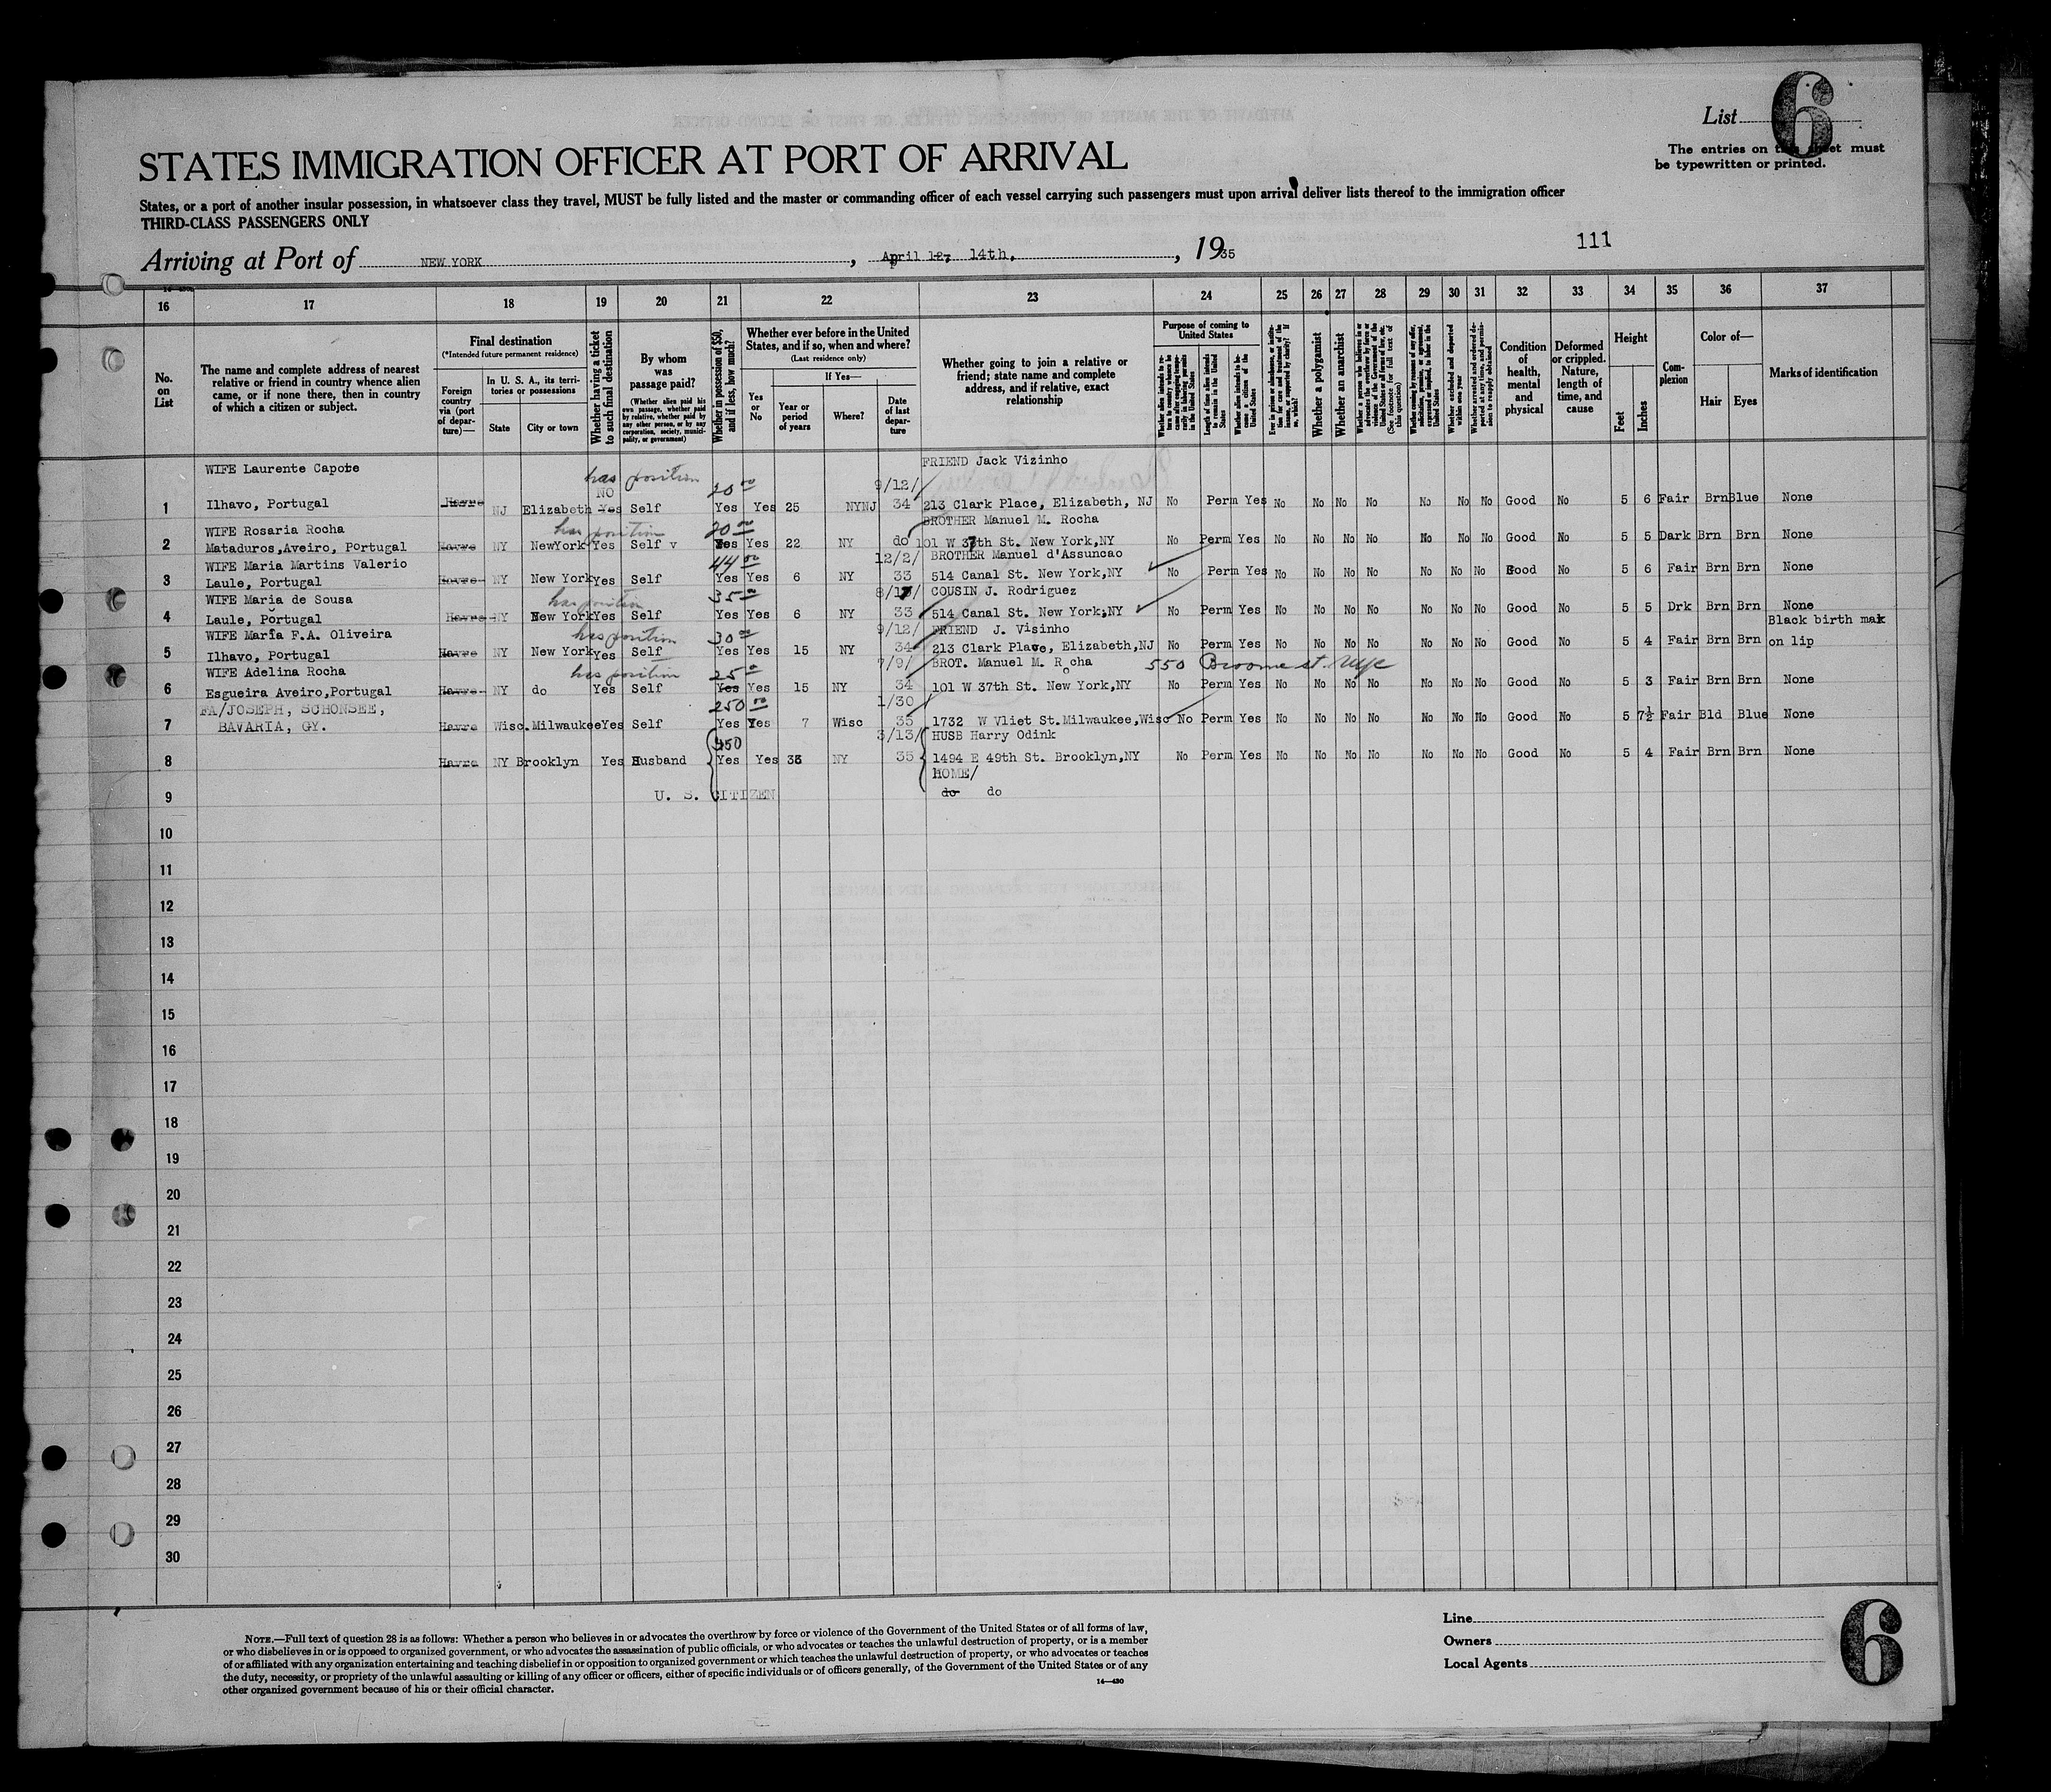 List 6
The entries on this sheet must
be typewritten or printed.
STATES IMMIGRATION OFFICER AT PORT OF ARRIVAL
States, or a port of another insular possession, in whatsoever class they travel, MUST be fully listed and the master or commanding officer of each vessel carrying such passengers must upon arrival deliver lists thereof to the immigration officer
THIRD-CLASS PASSENGERS ONLY
111
Arriving at Port of NEW YORK, April 14th, 1935
16 17 18 19 20 21 22 23 24 25 26 27 28 29 30 31 32 33 34 35 36 37
No. on List
The name and complete address of nearest relative or friend in country whence alien came, or if none there, then in country of which a citizen or subject.
Final destination
(*Intended future permanent residence)
Foreign country via (port of departure)—
In U. S. A., its territories or possessions
State
City or town
Whether having a ticket to such final destination
By whom was passage paid?
(Whether alien paid his own passage, whether paid by relative, whether paid by any other person, or by any corporation, society, municipality, or government)
Whether in possession of $50, and if less, how much?
Whether ever before in the United States, and if so, when and where?
(Last residence only)
If Yes—
Yes or No
Year or period of years
Where?
Date of last departure
Whether going to join a relative or friend; state name and complete address, and if relative, exact relationship
Purpose of coming to United States
Whether a polygamist
Whether an anarchist
Condition of health, mental and physical
Deformed or crippled. Nature, length of time, and cause
Height
Feet
Inches
Complexion
Color of—
Hair
Eyes
Marks of identification
WIFE Laurente Capote FRIEND Jack Vizinho
has position
NO 20 00 9/12/
1 Ilhavo, Portugal Havre NJ Elizabeth Yes Self Yes Yes 25 NYNJ 34 213 Clark Place, Elizabeth, NJ No Perm Yes No No No No No No No Good No 5 6 Fair Brn Blue None
WIFE Rosaria Rocha has position 20 00 BROTHER Manuel M. Rocha
2 Mataduros,Aveiro, Portugal Havre NY NewYork Yes Self v Yes Yes 22 NY do 101 W 37th St. New York,NY No Perm Yes No No No No No No No Good No 5 5 Dark Brn Brn None
WIFE Maria Martins Valerio 44 00 12/2/ BROTHER Manuel d'Assuncao
3 Laule, Portugal Havre NY New York Yes Self Yes Yes 6 NY 33 514 Canal St. New York,NY No Perm Yes No No No No No No No Good No 5 6 Fair Brn Brn None
WIFE Maria de Sousa has position 35 00 8/17/ COUSIN J. Rodriguez
4 Laule, Portugal Havre NY New York Yes Self Yes Yes 6 NY 33 514 Canal St. New York,NY No Perm Yes No No No No No No No Good No 5 5 Drk Brn Brn None
WIFE Maria F.A. Oliveira has position 30 00 9/12/ FRIEND J. Visinho Black birth mak
5 Ilhavo, Portugal Havre NY New York Yes Self Yes Yes 15 NY 34 213 Clark Plave, Elizabeth,NJ No Perm Yes No No No No No No No Good No 5 4 Fair Brn Brn on lip
WIFE Adelina Rocha has position 25 00 7/9/ BROT. Manuel M. Rocha 550 Broome st. nyc
6 Esgueira Aveiro,Portugal Havre NY do Yes Self Yes Yes 15 NY 34 101 W 37th St. New York,NY No Perm Yes No No No No No No No Good No 5 3 Fair Brn Brn None
FA/JOSEPH, SCHONSEE, 250 00 1/30/
7 BAVARIA, GY. Havre Wisc. Milwaukee Yes Self Yes Yes 7 Wisc 35 1732 W Vliet St.Milwaukee,Wisc No Perm Yes No No No No No No No Good No 5 7½ Fair Bld Blue None
450 3/13/ HUSB Harry Odink
8 Havre NY Brooklyn Yes Husband Yes Yes NY 35 1494 E 49th St. Brooklyn,NY No Perm Yes No No No No No No No Good No 5 4 Fair Brn Brn None
HOME/
9 U. S. CITIZEN do do
10
11
12
13
14
15
16
17
18
19
20
21
22
23
24
25
26
27
28
29
30
NOTE.—Full text of question 28 is as follows: Whether a person who believes in or advocates the overthrow by force or violence of the Government of the United States or of all forms of law,
or who disbelieves in or is opposed to organized government, or who advocates the assassination of public officials, or who advocates or teaches the unlawful destruction of property, or is a member
of or affiliated with any organization entertaining and teaching disbelief in or opposition to organized government or which teaches the unlawful destruction of property, or who advocates or teaches
the duty, necessity, or propriety of the unlawful assaulting or killing of any officer or officers, either of specific individuals or of officers generally, of the Government of the United States or of any
other organized government because of his or their official character.
14—430
Line
Owners
Local Agents
6